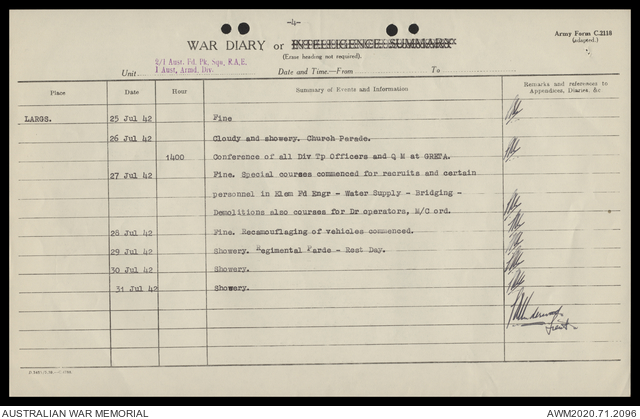 -4-
Army Form C.2118
(adapted.)
WAR DIARY or INTELLIGENCE SUMMARY
(Erase heading not required).
2/1 Aust. Fd. Pk. Sqn, R.A.E.
Unit 1 Aust. Armd. Div. Date and Time.—From To
Place Date Hour Summary of Events and Information Remarks and references to Appendices, Diaries, &c
LARGS. 25 Jul 42 Fine
26 Jul 42 Cloudy and showery. Church Parade.
1400 Conference of all Div Tp Officers and Q M at GRETA.
27 Jul 42 Fine. Special courses commenced for recruits and certain
personnel in Elem Fd Engr - Water Supply - Bridging -
Demolitions also courses for Dr operators, M/C ord.
28 Jul 42 Fine. Recamouflaging of vehicles commenced.
29 Jul 42 Showery. Regimental Parde - Rest Day.
30 Jul 42 Showery.
31 Jul 42 Showery.
Lieut
AUSTRALIAN WAR MEMORIAL AWM2020.71.2096